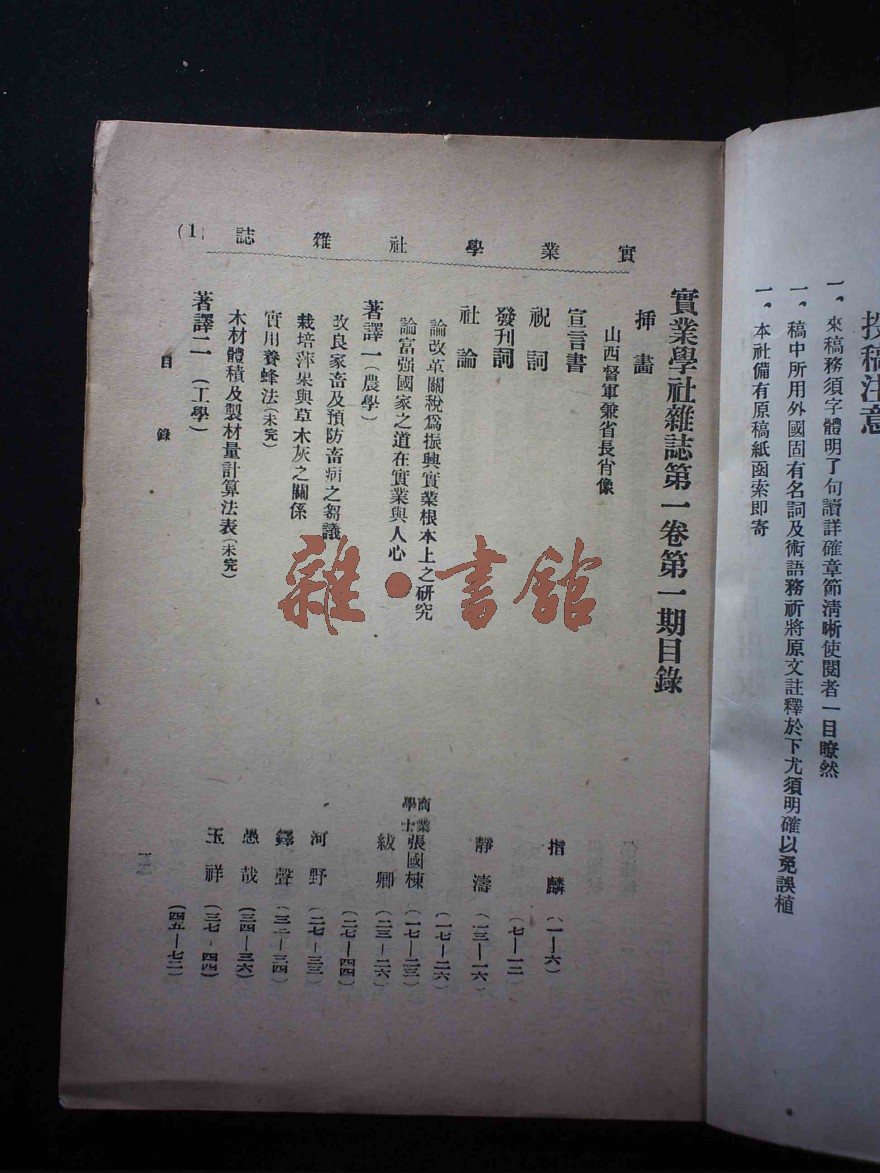 投稿注意
一、來稿務須字體明了句讀詳確章節清晰使閱者一目瞭然
一、稿中所用外國固有名詞及術語務祈將原文註釋於下尤須明確以免誤植
一、本社備有原稿紙函索即寄
實業學社雜誌
(1)
實業學社雜誌第一卷第一期目錄
插畫
山西督軍兼省長肖像
宣言書 指麟 (一—六)
祝詞 (七—一二)
發刊詞 靜濤 (一三—一六)
社論 (一七—二六)
論改革關稅爲振興實業根本上之研究 商業學士張國棟 (一七—二三)
論富强國家之道在實業與人心 紱卿 (二三—二六)
著譯一(農學) (二七—四四)
改良家畜及預防畜病之芻議 河野 (二七—三三)
栽培萍果與草木灰之關係 鐸聲 (三二—三四)
實用養蜂法(未完) 愚哉 (三四—三六)
木材體積及製材量計算法表(未完) 玉祥 (三七—四四)
著譯二(工學) (四五—七二)
目錄
雜·書館